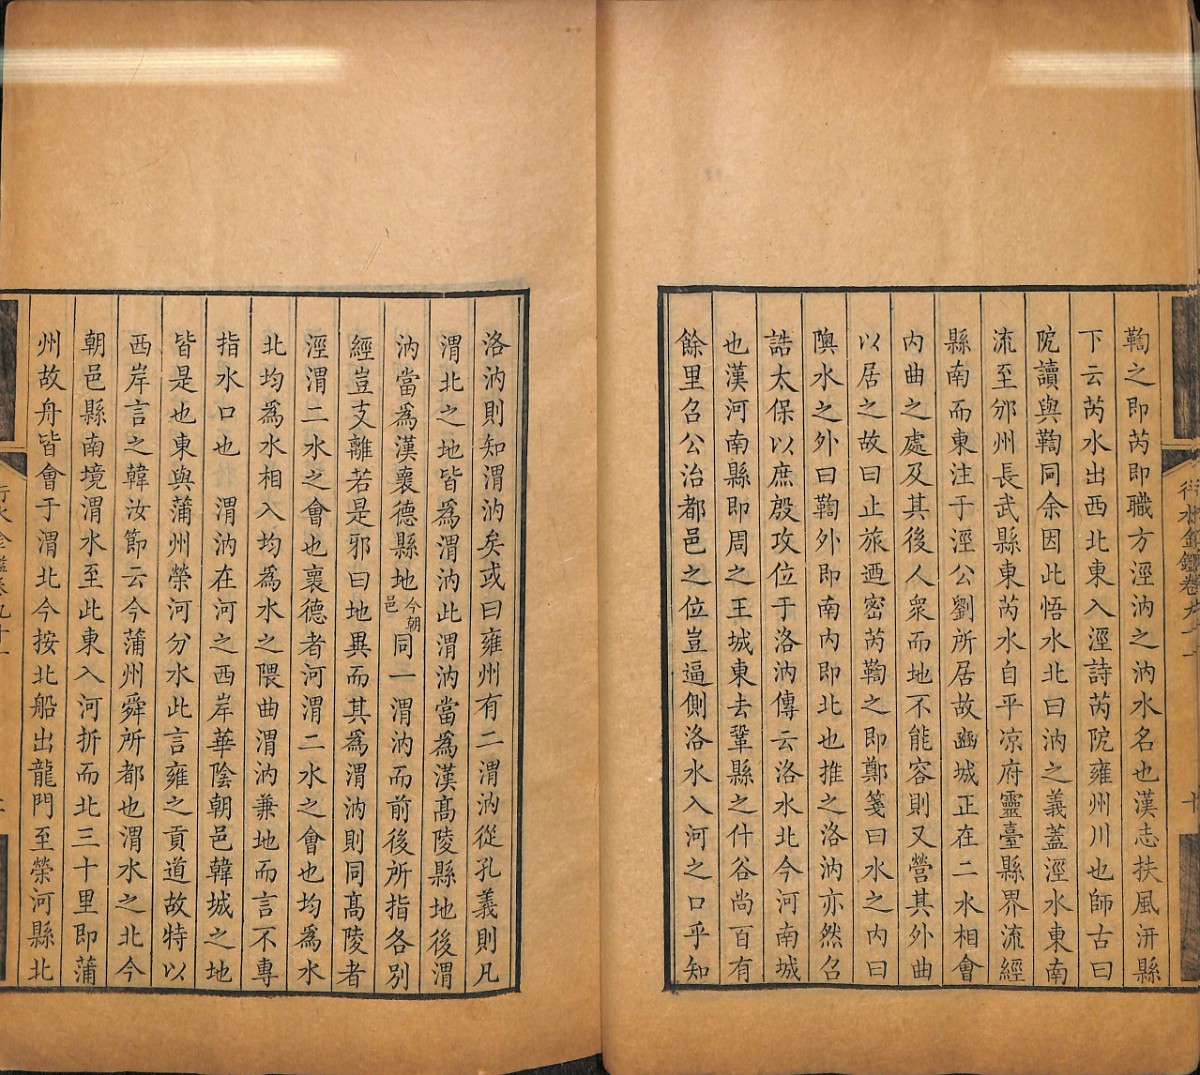 鞫之即芮即職方涇汭之汭水名也漢志扶風汧縣
下云芮水出西北東入涇詩芮阮雍州川也師古曰
阮讀與鞫同余因此悟水北曰汭之義蓋涇水東南
流至邠州長武縣東芮水自平凉府靈臺縣界流經
縣南而東注于涇公劉所居故豳城正在二水相會
內曲之處及其後人衆而地不能容則又營其外曲
以居之故曰止旅迺密芮鞫之即鄭箋曰水之內曰
隩水之外曰鞫外即南內即北也推之洛汭亦然召
誥太保以庶殷攻位于洛汭傳云洛水北今河南城
也漢河南縣即周之王城東去鞏縣之什谷尚百有
餘里召公治都邑之位豈逼側洛水入河之口乎知
洛汭則知渭汭矣或曰雍州有二渭汭從孔義則凡
渭北之地皆爲渭汭此渭汭當爲漢高陵縣地後渭
汭當爲漢襄德縣地今朝邑同一渭汭而前後所指各別
經豈支離若是邪曰地異而其爲渭汭則同高陵者
涇渭二水之會也襄德者河渭二水之會也均爲水
北均爲水相入均爲水之隈曲渭汭兼地而言不專
指水口也　渭汭在河之西岸華陰朝邑韓城之地
皆是也東與蒲州榮河分水此言雍之貢道故特以
西岸言之韓汝節云今蒲州舜所都也渭水之北今
朝邑縣南境渭水至此東入河折而北三十里即蒲
州故舟皆會于渭北今按北船出龍門至榮河縣北
行水金鑑卷九十一